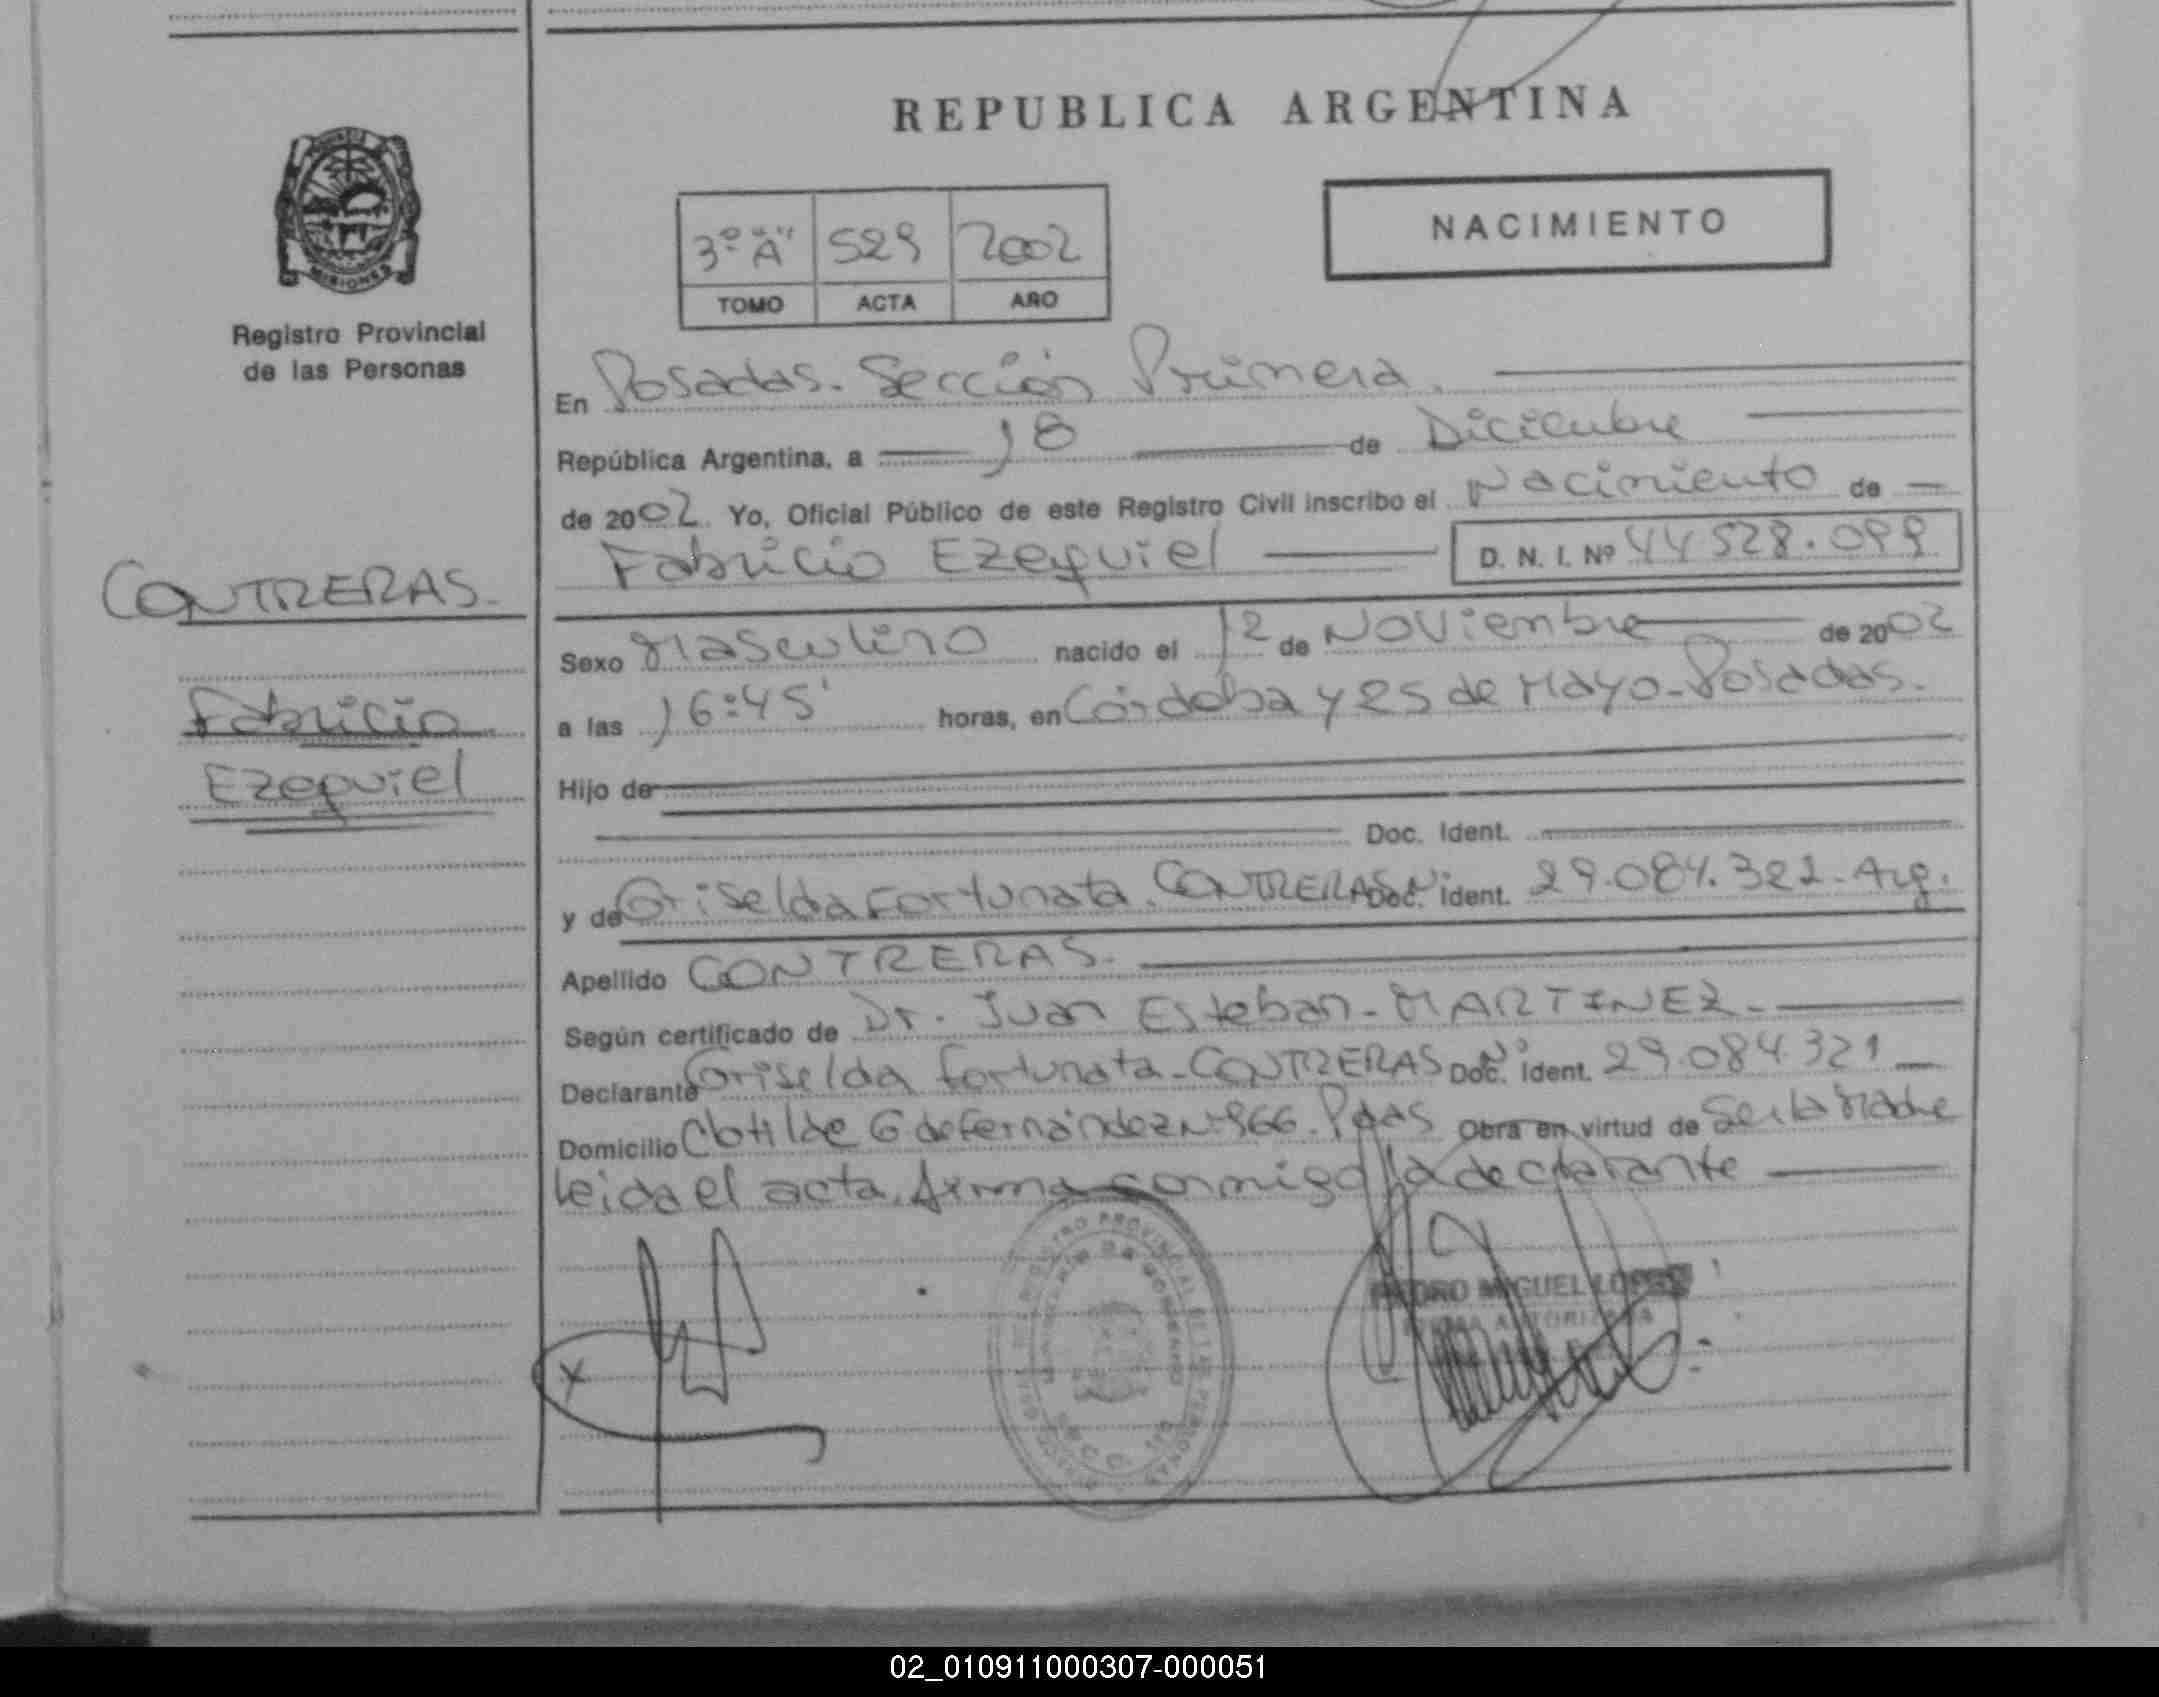 REPUBLICA ARGENTINA
NACIMIENTO
3º "A" 529 2002
TOMO ACTA AÑO
MISIONES
Registro Provincial
de las Personas
CONTRERAS.
Fabricio
Ezequiel
En Posadas. Sección Primera.
República Argentina, a 18 de Diciembre
de 2002. Yo, Oficial Público de este Registro Civil inscribo el Nacimiento de
Fabricio Ezequiel D. N. I. Nº 44528.099
Sexo Masculino nacido el 12 de Noviembre de 2002
a las 16:45' horas, en Córdoba y 25 de Mayo-Posadas.
Hijo de
Doc. Ident.
y de Griselda Fortunata. CONTRERAS Nº Doc. Ident. 29.084.321-Arg.
Apellido CONTRERAS.
Según certificado de Dr. Juan Esteban-MARTINEZ-
Declarante Griselda Fortunata-CONTRERAS Nº Doc. Ident. 29.084.321
Domicilio Clotilde G de Fernández Nº 966. Pdas Obra en virtud de Ser la Madre
leida el acta, firma conmigo la declarante
REGISTRO PROVINCIAL DE LAS PERSONAS
MINISTERIO DE GOBIERNO
PEDRO MIGUEL LOPEZ
FIRMA AUTORIZADA
X
02_010911000307-000051